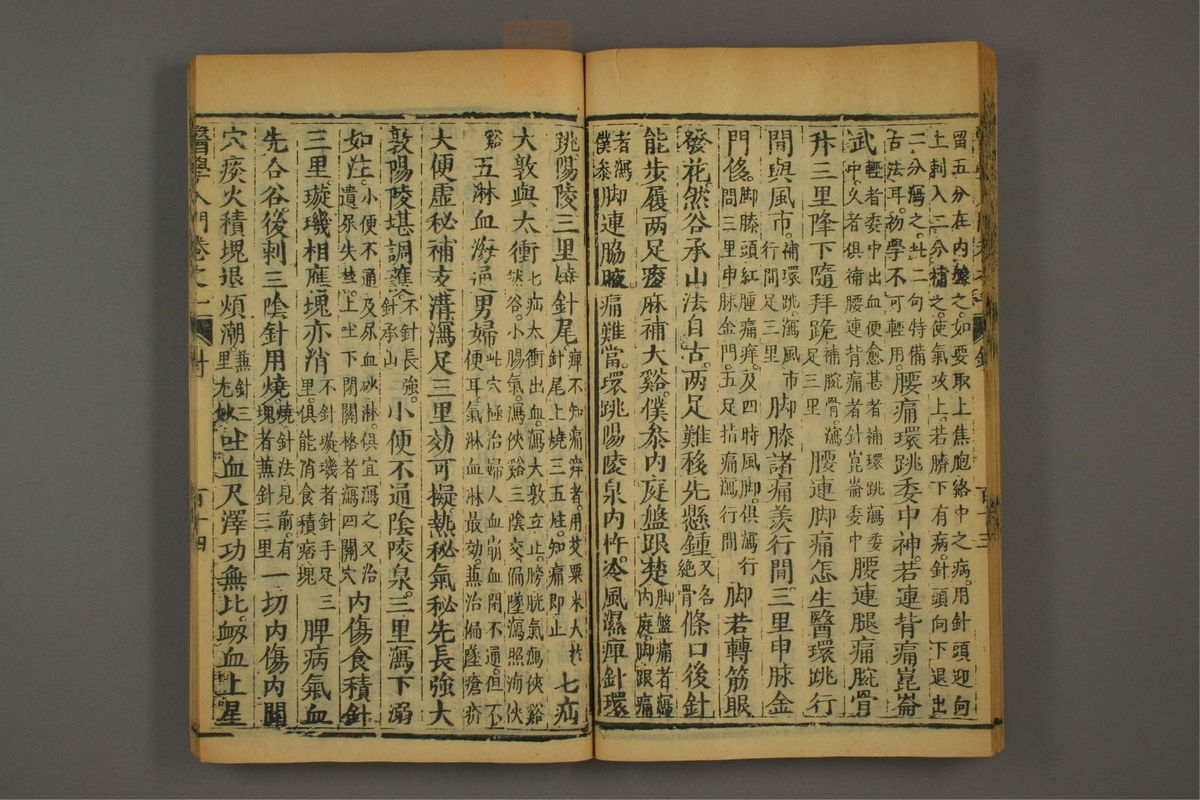 留五分在內盤之如要取上焦胞絡中之病用針頭迎向
上刺入二分補之使氣攻上若臍下有病針頭向下退出
二分瀉之此二句特備
古法耳初學不可輕用腰痛環跳委中神若連背痛崑崙
武輕者委中出血便愈甚者補環跳瀉委
中久者俱補腰連背痛者針崑崙委中腰連腿痛腕骨
升三里降下隨拜跪補腕骨瀉
足三里腰連脚痛怎生醫環跳行
間與風市補環跳瀉風市
行間足三里脚膝諸痛羨行間三里申脉金
門侈脚膝頭紅腫痛痒及四時風脚俱瀉行
間三里申脉金門五足指痛瀉行間脚若轉筋眼
發花然谷承山法自古兩足難移先懸鍾又名
絕骨條口後針
能步履兩足痠麻補大谿僕參內庭盤跟楚脚盤痛者瀉
內庭脚跟痛
者瀉
僕參脚連脇腋痛難當環跳陽陵泉內杵冷風濕痺針環
跳陽陵三里燒針尾痺不知痛痒者用艾粟米大於
針尾上燒三五炷知痛即止七疝
大敦與太衝七疝太衝出血瀉大敦立止膀胱氣瀉俠谿
然谷小腸氣瀉俠谿三陰交偏墜瀉照海俠
谿五淋血海通男婦此穴極治婦人血崩閉不通但不
便耳氣淋血淋最効兼治偏墜瘡疥
大便虛秘補支溝瀉足三里効可擬熱秘氣秘先長強大
敦陽陵堪調護不針長強
針承山小便不通陰陵泉三里瀉下溺
如注小便不通及尿血砂淋俱宜瀉之又治
遺尿失禁上吐下閉關格者瀉四關穴內傷食積針
三里璇璣相應塊亦消不針璇璣者針手足三
里俱能消食積痞塊脾病氣血
先合谷後刺三陰針用燒燒針法見前有
塊者兼針三里一切內傷內關
穴痰火積塊退煩潮兼針三
里尤妙吐血尺澤功無比衂血上星
醫學入門 卷之一
百十四